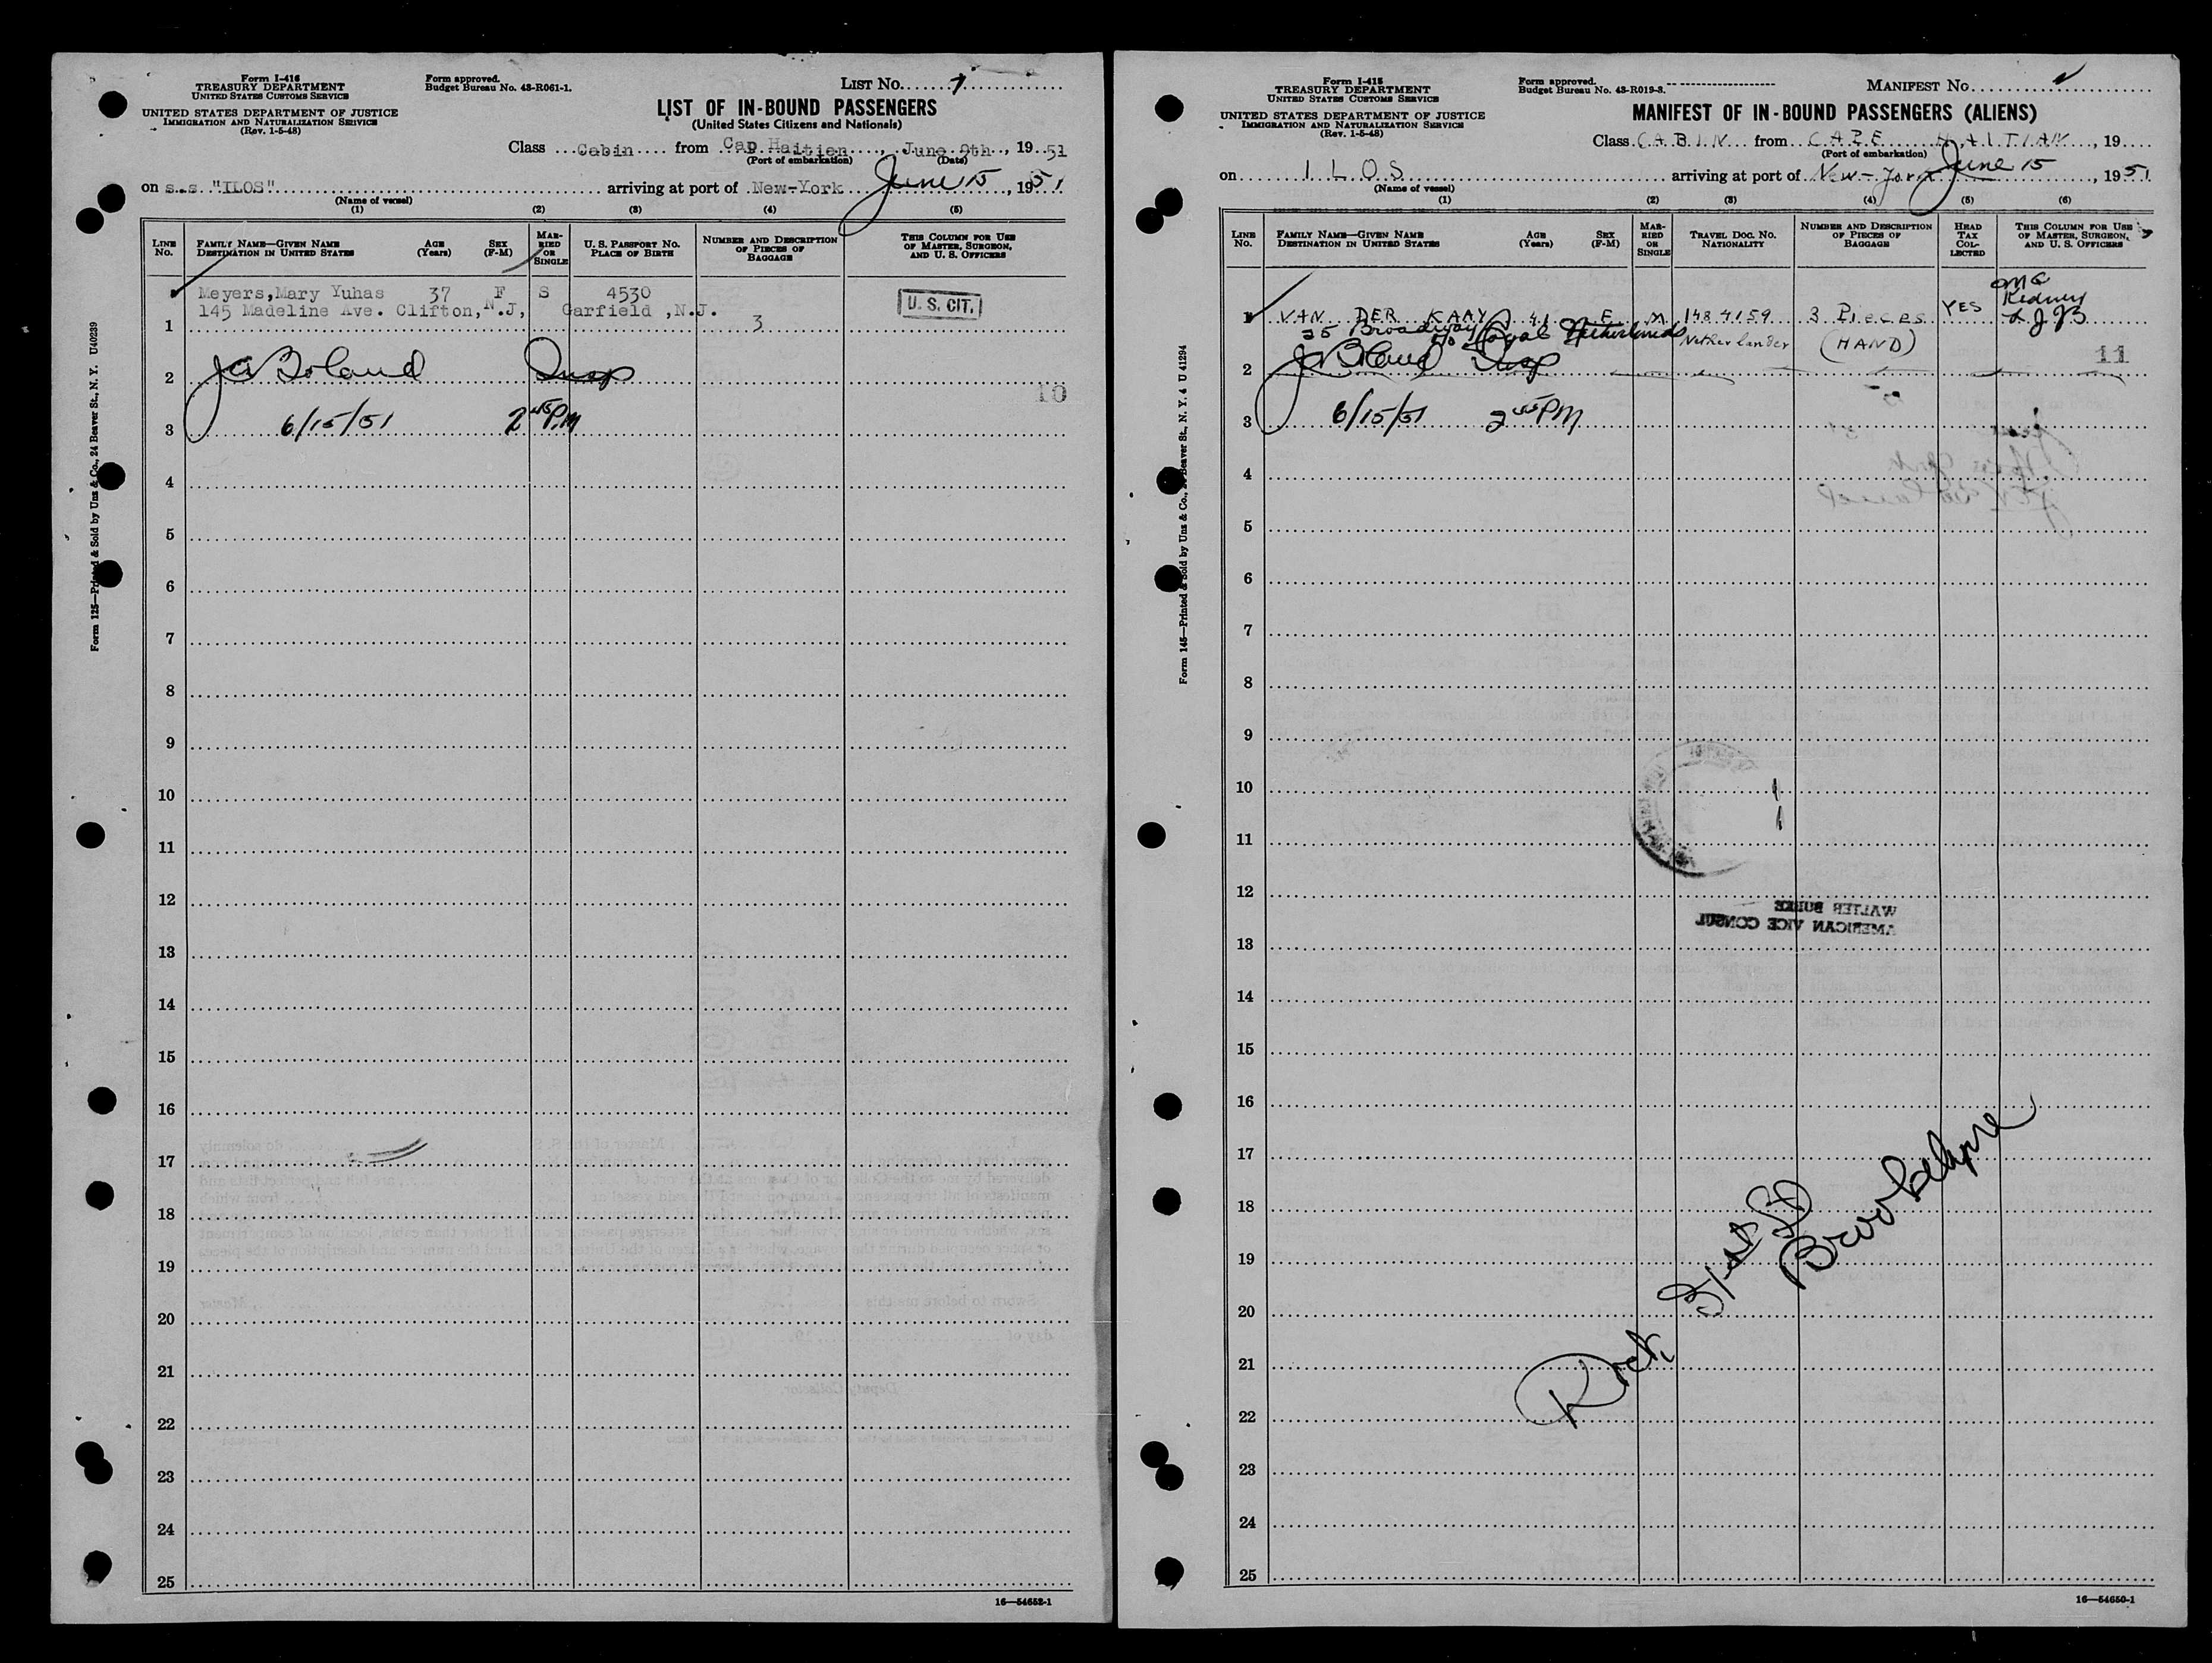 Form I-416
TREASURY DEPARTMENT
UNITED STATES CUSTOMS SERVICE
UNITED STATES DEPARTMENT OF JUSTICE
IMMIGRATION AND NATURALIZATION SERVICE
(Rev. 1-5-48)
Form approved.
Budget Bureau No. 43-R061-1.
LIST No. 1
LIST OF IN-BOUND PASSENGERS
(United States Citizens and Nationals)
Class Cabin from Cap Haitien, June 9th, 1951
(Port of embarkation) (Date)
on s.s "ILOS" arriving at port of New-York June 15, 1951
(Name of vessel)
(1) (2) (3) (4) (5)
LINE No.
FAMILY NAME—GIVEN NAME
DESTINATION IN UNITED STATES
AGE (Years)
SEX (F-M)
MARRIED OR SINGLE
U. S. PASSPORT NO.
PLACE OF BIRTH
NUMBER AND DESCRIPTION OF PIECES OF BAGGAGE
THIS COLUMN FOR USE OF MASTER, SURGEON, AND U. S. OFFICERS
Meyers, Mary Yuhas 37 F S 4530 U. S. CIT.
145 Madeline Ave. Clifton, N.J, Garfield, N.J.
1 3
2 JABoland Insp
10
3 6/15/51 2 45 PM
4
5
6
7
8
9
10
11
12
13
14
15
16
17
18
19
20
21
22
23
24
25
16—54652-1
Form 125—Printed & Sold by Unz & Co., 24 Beaver St., N. Y. U40239
Form I-415
TREASURY DEPARTMENT
UNITED STATES CUSTOMS SERVICE
UNITED STATES DEPARTMENT OF JUSTICE
IMMIGRATION AND NATURALIZATION SERVICE
(Rev. 1-5-48)
Form approved.
Budget Bureau No. 43-R019-3.
MANIFEST No.
MANIFEST OF IN-BOUND PASSENGERS (ALIENS)
Class CABIN from CAPE HAITIAN, 19
(Port of embarkation)
on ILOS arriving at port of New-York June 15, 1951
(Name of vessel)
(1) (2) (3) (4) (5) (6)
LINE No.
FAMILY NAME—GIVEN NAME
DESTINATION IN UNITED STATES
AGE (Years)
SEX (F-M)
MARRIED OR SINGLE
TRAVEL DOC. NO.
NATIONALITY
NUMBER AND DESCRIPTION OF PIECES OF BAGGAGE
HEAD TAX COLLECTED
THIS COLUMN FOR USE OF MASTER, SURGEON, AND U. S. OFFICERS
1 VAN DER KAAY 41 F M 1484159 3 Pieces YES
25 Broadway c/o Royal Netherlands Netherlander (HAND)
11
2 JABoland Insp
3 6/15/51 2 45 PM
4
5
6
7
8
9
10
11
12
WALTER BURKE
AMERICAN VICE CONSUL
13
14
15
16
17
18
19
20
21
22
23
24
25
31st St
16—54650-1